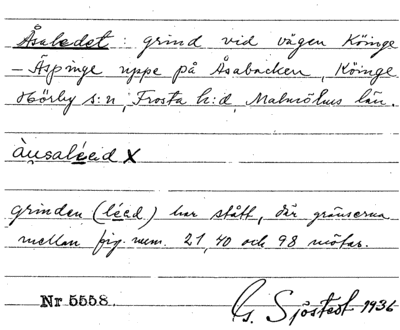 Åsaledet : grind vid vägen Köinge
– Äspinge uppe på Åsabacken, Köinge
Hörby s:n, Frosta h:d, Malmöhus län.
àu̥saléed x
grinden (léed) har stått, där gränserna
mellan fig. num. 21, 40 och 98 mötas.
Nr.5558.
G. Sjöstedt 1936